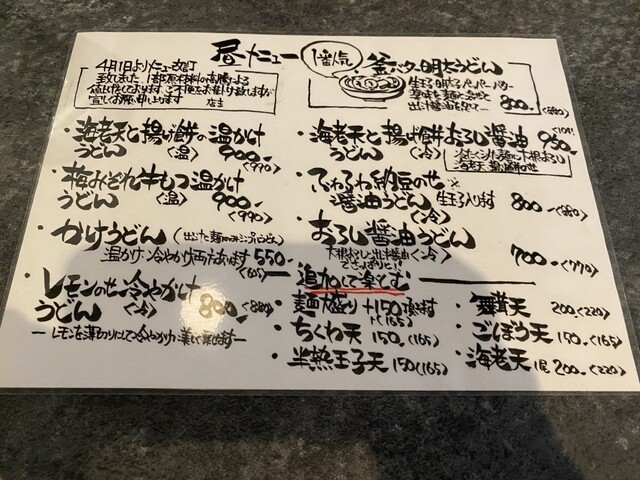 昼メニュー
4月1日よりメニュー改訂
致しました。1部原材料の高騰による
値上げをしております。ご不便をお掛け致しますが
宜しくお願い申し上げます 店主
1番人気
釜バター明太うどん
生玉子 明太子 ペッパー バター
薬味を麺にからめて
800-<880>
・海老天と揚げ餅の温かけ
うどん <温> 900- <990>
・梅みぞれ牛もつ温かけ
うどん <温> 900- <990>
・かけうどん
温かけ 冷やかけ両方有ります 550- <605>
・レモンのせ冷やかけ
うどん <冷> 800- <880>
― レモンを薄切りにして冷やかけ
・海老天と揚げ餅おろし醤油
うどん <冷> 950- <1045>
冷たく〆た麺に大根おろし
海老天
・ふわふわ納豆のせ
醤油うどん <冷> 生玉子入ります 800- <880>
・おろし醤油うどん <冷>
大根おろしと出汁醤油
でさっぱりと! 700- <770>
追加して楽しむ
・麺大盛り +150 <165>
・ちくわ天 150- <165>
・半熟玉子天 150 <165>
・舞茸天 200 <220>
・ごぼう天 150- <165>
・海老天 1尾 200- <220>